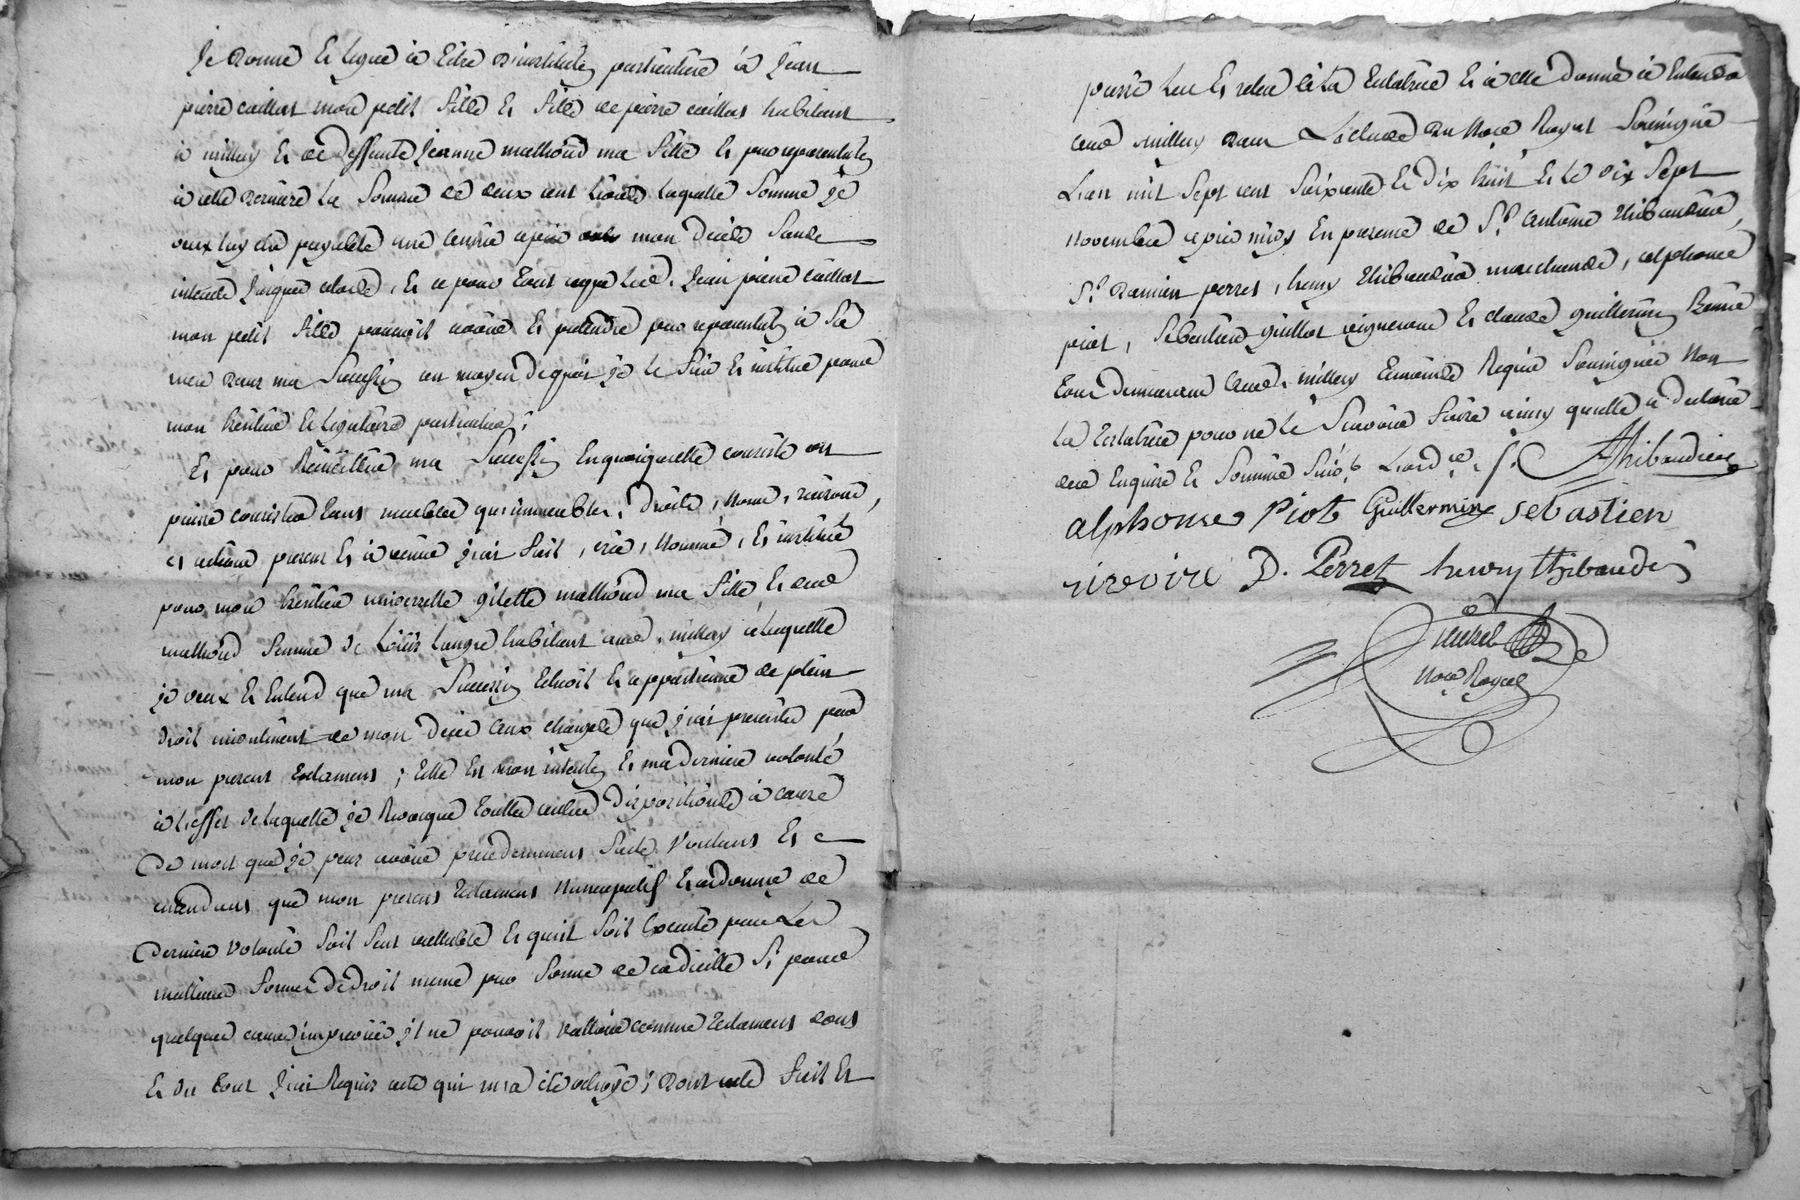 Je donne et legue à titre d'institution particulière à Jean
pierre caillot mon petit fille et fille de pierre caillot habitant
à millery et de deffunte Jeanne malhoud ma fille et par representation
à cette dernière la somme de deux cent livres laquelle somme je
veux luy etre payable une année après mon décès sans
interets jusques alors, et ce pour tout ce que led. Jean pierre caillot
mon petit fille pourroit avoir et pretendre par representation de sa
mere dans ma succession au moyen de quoi je le fais et institue pour
mon héritier et légataire particulier;
Et pour Recueillir ma succession en quoiquelle consiste ou
puisse consister tant meubles qu'immeubles, droits, noms, raisons,
et actions present et à venir j'ai fait, crée, nommé, et institué
pour mon héritière universelle gilette malhoud ma fille et aud
malhoud femme de Louis Langre habitant aud. millery à laquelle
je veux et entend que ma succession echoit et appartienne de plein
droit incontinent de mon décès aux charges que j'ai prescrites par
mon present testament; telle est mon intention et ma derniere volonté
à l'effet de laquelle je Revoque toutes autres dispositions à cause
de mort que je peux avoir precedemment faites voulant et
entendant que mon present testament nuncupatif et ordonnance de
derniere volonté soit seul vallable et qu'il soit Executé par les
meilleures formes de droit meme par forme de codicille si pour
quelque cause impreviie il ne pouvoit valloir comme testament dont
Et du tout j'ai Requis acte qui m'a été octroyé; dont acte fait et
passé leu et releu à la testatrice et à elle donné à entendre
aud millery dans L'étude du No.re Royal soussigné
L'an mil sept cent soixante et dix huit et le dix sept
Novembre après midy En presence de S.r antoine thibaudier,
S.r Damien perret, henry thibaudier marchands, alphonce
piot, sebastien guillot vigneron et claude guillermin
tous demeurans aud. millery temoins Requis soussignés non
la testatrice pour ne le scavoir faire ainsy quelle a declaré
de ce Enquise et sommée suiv.t L'ord.ce /. AThibaudier
alphonse Piot Guillermin sebastien
rirevire D. Perret henry thibaudier
No.re Royal